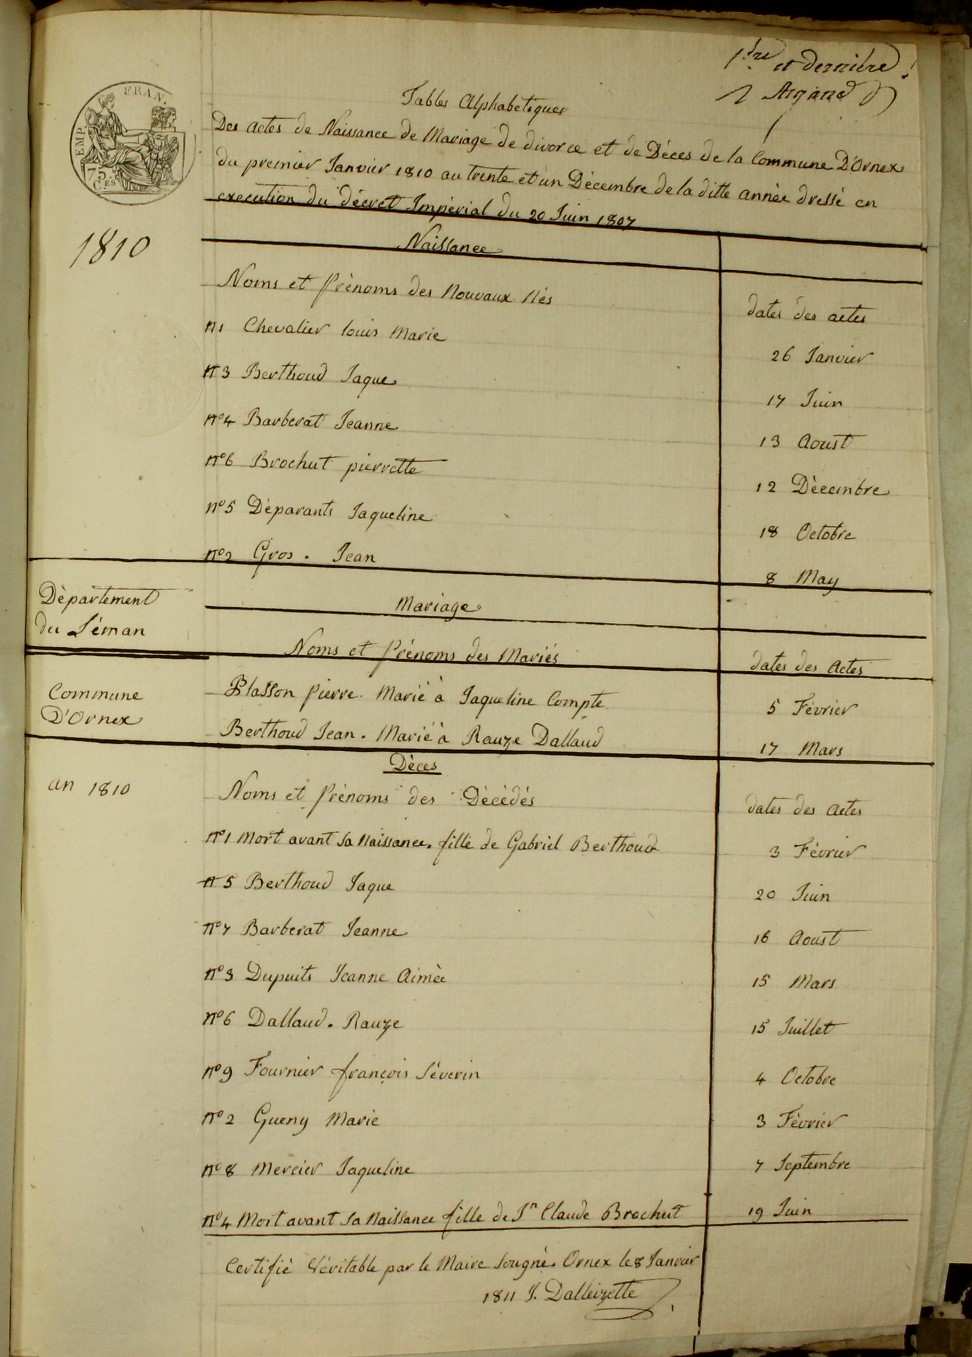 1re et dernière
Tables Alphabetiques
Des actes de Naissance de Mariage de divorce et de Déces de la Commune D'Ornex
du premier Janvier 1810 au trente et un Décembre de la ditte année dressé en
execution du décret Impérial du 20 Juin 1807
EMP. FRAN.
75 Ces
1810
Naissance
Noms et Prénoms des Nouvaux Nés dates des actes
n1 Chevalier louis Marie 26 Janvier
n3 Berthoud Jaque 17 Juin
no4 Barberat Jeanne 13 Aoust
no6 Brochut pierrette 12 Décembre
no5 Déparants Jaqueline 18 Octobre
no2 Gros. Jean 8 May
Département
du Léman
Mariage
Noms et Prénoms des Mariés dates des Actes
Commune
D'Ornex
Blasson Pierre. Marié à Jaqueline Compte 5 Février
Berthoud Jean. Marié à Rauze Dallaud 17 Mars
an 1810
Déces
Noms et Prénoms des Décédés dates des actes
no1 Mort avant sa Naissance. fille de Gabriel Berthoud 3 Février
n5 Berthoud Jaque 20 Juin
no7 Barberat Jeanne 16 Aoust
no3 Dupuits Jeanne Aimée 15 Mars
no6 Dallaud. Rauze 15 Juillet
no9 Fournier françois Séverin 4 Octobre
no2 Gueny Marie 3 Février
no8 Mercier Jaqueline 7 Septembre
no4 Mort avant sa Naissance fille de Sr Claude Brochut 19 Juin
Certifié Véritable par le Maire sougné. Ornex le 8 Janvier
1811 J. Dalleizette